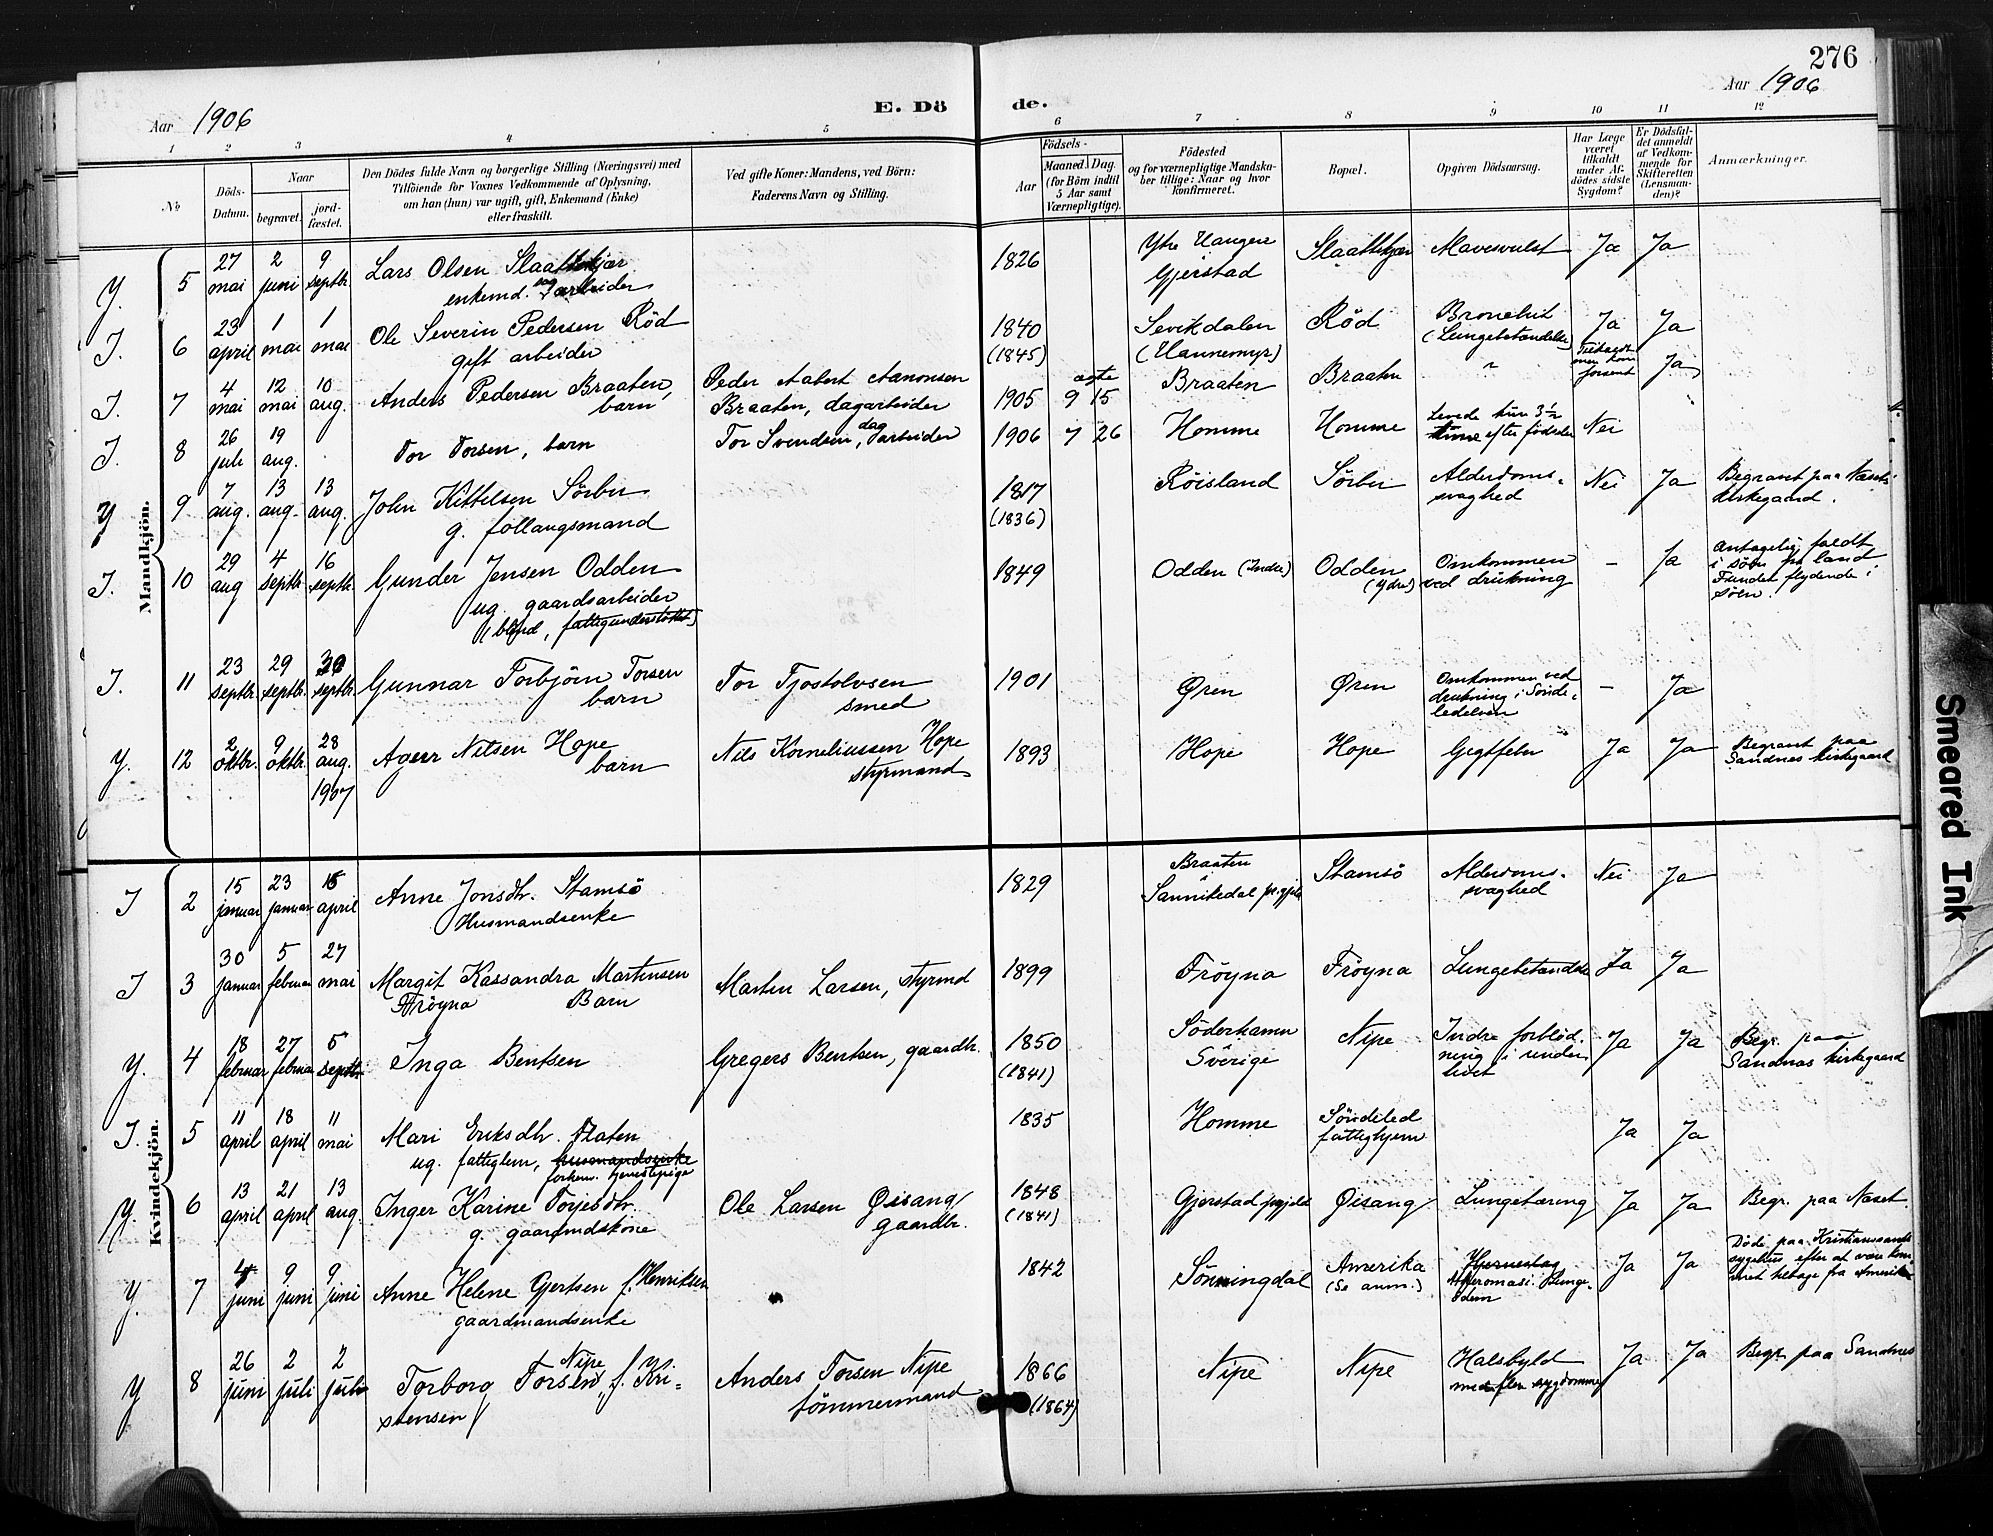 276
Aar 1906
E. Dö de.
Aar 1906
1 2 3 4 5 6 7 8 9 10 11 12
No
Döds-Datum.
Naar
begravet.
jord-fæstet.
Den Dödes fulde Navn og borgerlige Stilling (Næringsvei) med
Tilföiende for Voxnes Vedkommende af Oplysning,
om han (hun) var ugift, gift, Enkemand (Enke)
eller fraskilt.
Ved gifte Koner: Mandens, ved Börn:
Faderens Navn og Stilling.
Födsels-
Aar
Maaned. Dag.
(for Börn indtil
5 Aar samt
Værnepligtige).
Födested
og for værnepligtige Mandska-
ber tillige: Naar og hvor
konfirmeret.
Bopæl.
Opgiven Dödsaarsag.
Har Læge
været
tilkaldt
under Af-
dödes sidste
Sygdom?
Er Dödsfal-
det anmeldt
af Vedkom-
mende for
Skifteretten
(Lensman-
den)?
Anmærkninger.
Mandkjön.
Y. 5 27 mai 2 juni 9 septbr. Lars Olsen Slaattekjær
enkemd. dagarbeider
1826 Ytre Vangen
Gjerstad Slaattekjær Mavesvulst Ja Ja
I. 6 23 april 1 mai 1 mai Ole Severin Pedersen Röd
gift arbeider
1840
(1845) Sevikdalen
(Vannemyr) Röd Bronchit
(Lungebetændelse) Ja Ja
I. 7 4 mai 12 mai 10 aug. Anders Pedersen Braaten,
barn
Peder Aabert Aanonsen
Braaten, dagarbeider
1905 9 15 Braaten Braaten " Tilkaldt
men kom
forsent Ja
I. 8 26 juli 19 aug. Tor Torsen, barn Tor Svendsen, dagarbeider
1906 7 26 Homme Homme Levede kun 3½
time efter födselen Nei
Y 9 7 aug. 13 aug. 13 aug. John Kittelsen Sörbu
g. follaugsmand
1817
(1836) Röisland Sörbu Alderdoms-
svaghed Nei Ja Begravet paa Næset
kirkegaard.
I. 10 29 aug 4 septbr. 16 septbr. Gunder Jensen Odden
ug. gaardsarbeider
(blind, fattigunderstöttet)
1849 Odden (Indre) Odden
(Ydre) Omkommen
ved drukning - Ja Antagelig faldt
i söen fra land.
Fundet flydende i
söen.
I. 11 23 septbr. 29 septbr. 30 septbr. Gunnar Torbjörn Torsen
barn
Tor Tjostolvsen
smed
1901 Øren Øren Omkommen ved
drukning i Sönde-
ledelven - Ja
Y. 12 2 oktbr. 9 oktbr. 28 aug. 1907 Ageer Nilsen Hope
barn
Nils Korneliussen Hope
styrmand
1893 Hope Hope Gigtfeber Ja Ja Begravet paa
Sandnes kirkegaard
Kvindekjön.
I 2 15 januar 23 januar 15 april Anne Jonsdtr. Stamsö
Husmandsenke
1829 Braaten
Sannikedal prgjeld Stamsö Alderdoms-
svaghed Nei Ja
I 3 30 januar 5 februar 27 mai Margit Kassandra Martinsen
Fröyna Barn
Martin Larsen, styrmd
1899 Fröyna Fröyna Lungebetændelse Ja Ja
Y. 4 18 februar 27 februar 5 septbr. Inga Bentsen
Gregers Bentsen, gaardbr.
1850
(1841) Söderhamn
Sverige Nipe Indre forblöd-
ning i under
livet Ja Ja Begr. paa
Sandnas kirkegaard
I. 5 11 april 18 april 11 mai Mari Eriksdtr. Platen
ug. fattiglem, husmandsenke
forhenv. tjenestepige
1835 Homme Söndeled
fattighjem Ja Ja
Y. 6 13 april 21 april 13 aug. Inger Karine Torjesdtr.
g. gaardmdskone
Ole Larsen Øisang
gaardbr.
1848
(1841) Gjerstad prgjeld Øisang Lungetæring Ja Ja Begr. paa Næset.
Y. 7 4 juni 9 juni 9 juni Anne Helene Gjertsen f. Henriksen
gaardmandsenke
1842 Sönningdal Amerika
(Se anm.) Hjerneslag
Atheromasi. Lunge-
ödem Ja Ja Döde paa Kristianssands
sygehus efter at være kom-
met tilbage fra Amerika
Y 8 26 juni 2 juli 2 juli Torborg Torsen Nipe, f. Kri-
stensen
Anders Torsen Nipe
tömmermand
1866
(1864) Nipe Nipe Halsbyld
med flere sygdomme Ja Ja Begr. paa Sandnes
Smeared Ink